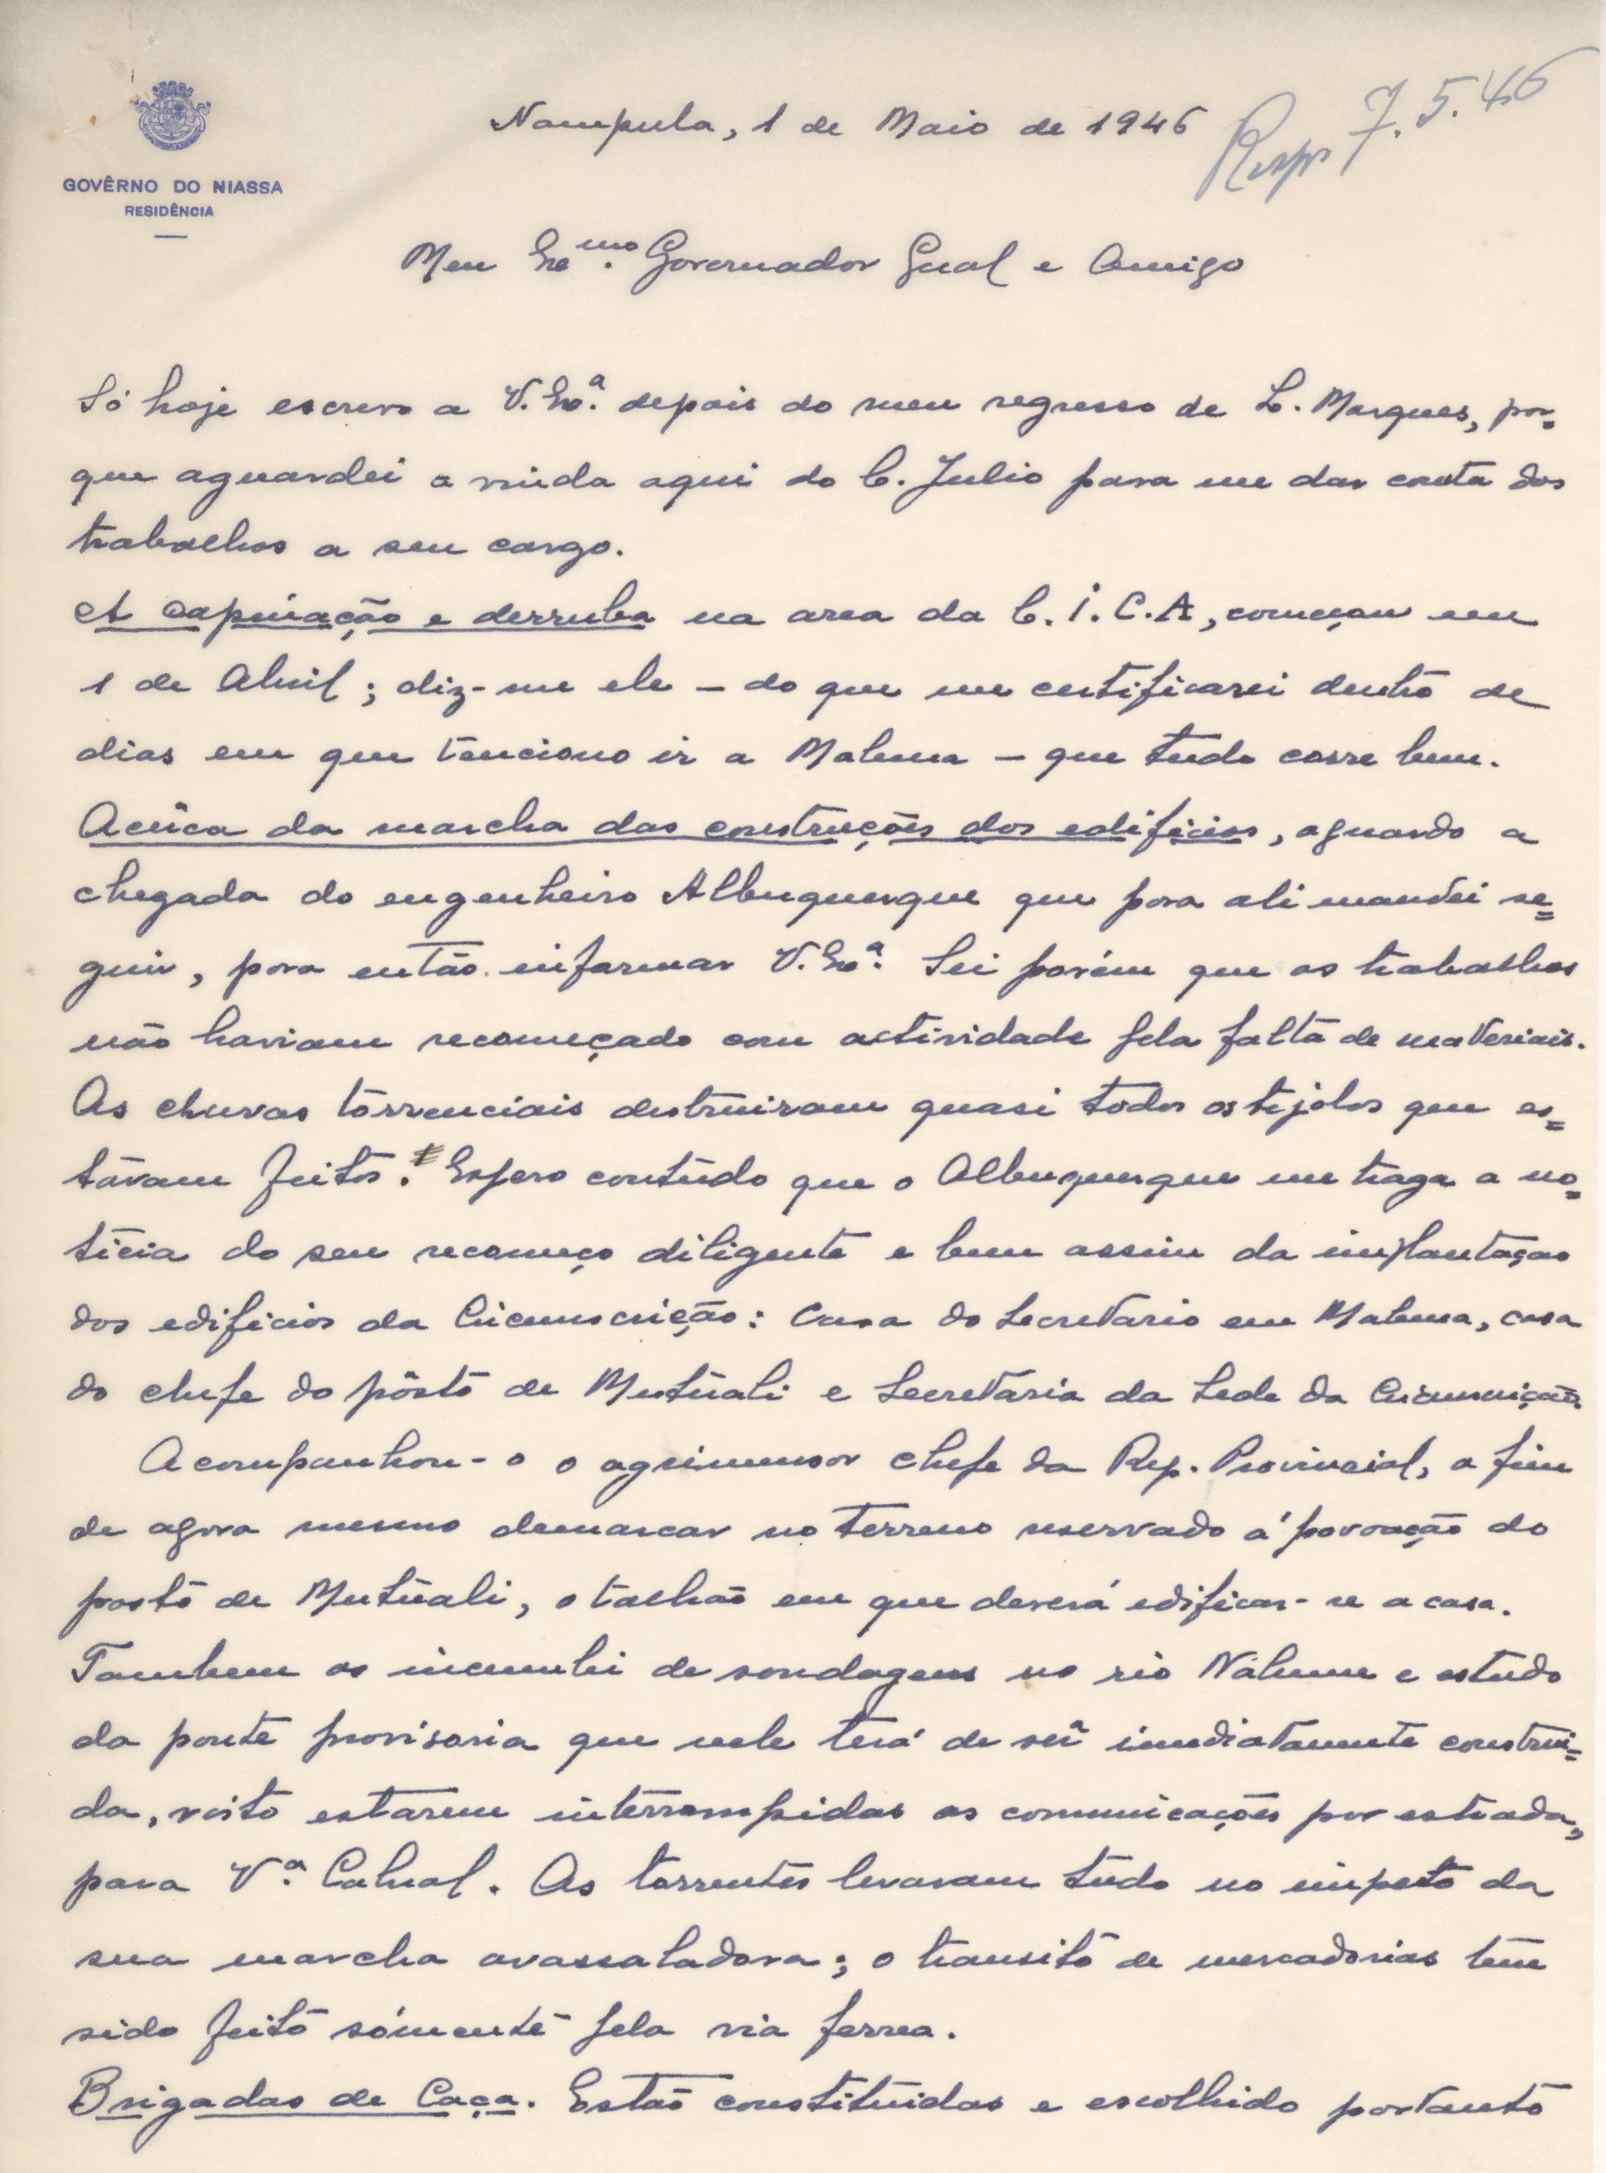 GOVÊRNO DO NIASSA
RESIDÊNCIA
Nampula, 1 de Maio de 1946
Resp 7.5.46
Meu Exmo. Governador Geral e Amigo
Só hoje escrevo a V. Exª. depois do meu regresso de L. Marques, por=
que aguardei a vinda aqui do C. Julio para me dar conta dos
trabalhos a seu cargo.
A capinação e derruba na area da C.I.C.A, começou em
1 de Abril; diz-me ele – do que me certificarei dentro de
dias em que tenciono ir a Malema – que tudo corre bem.
Acêrca da marcha das construções dos edificios, aguardo a
chegada do engenheiro Albuquerque que para ali mandei se=
guir, para então informar V. Exª. Sei porém que os trabalhos
não haviam recomeçado com actividade pela falta de materiais.
As chuvas torrenciais destruiram quasi todos os tijolos que es=
tavam feitos. Espero contudo que o Albuquerque me traga a no=
ticia do seu recomeço diligente e bem assim da implantaçao
dos edificios da Circunscrição: Casa do Secretario em Malema, casa
do chefe do pôsto de Mutuali e Secretaria da Sede da Circunscrição.
Acompanhou-o o agrimensor chefe da Rep. Provincial, a fim
de agora mesmo demarcar no terreno reservado á povoação do
posto de Mutuali, o talhão em que deverá edificar-se a casa.
Tambem os incumbi de sondagens no rio Nálume e estudo
da ponte provisoria que nele terá de ser imediatamente construi=
da, visto estarem interrompidas as comunicações por estrada,
para Vª. Cabral. As torrentes levaram tudo no impeto da
sua marcha avassaladora; o transito de mercadorias tem
sido feito sómente pela via ferrea.
Brigadas de Caça. Estão constituidas e escolhido portanto